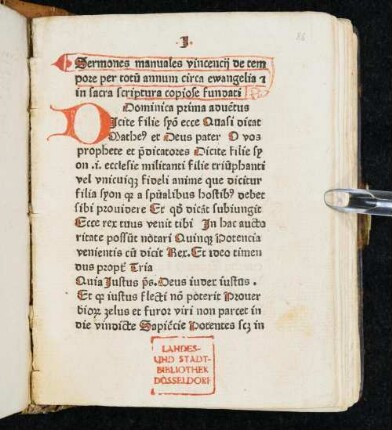 .I.
Sermones manuales vincencij de tem
pore per totū annum circa ewangelia ⁊
in sacra scriptura copiose fundati
Dominica prima aduētus
Dicite filie syō ecce Quasi dicat
Mathe⁹ et Deus pater O vos
prophete et p̄dicatores Dicite filie sy
on .i. ecclesie militanti filie triūphanti
vel vnicuiq̨ fideli anime que dicitur
filia syon q a sp̄ualibus hostib⁹ debet
sibi prouidere Et qd̄ dicāt subiungit
Ecce rex tuus venit tibi In hac aucto
ritate possūt nōtari Quinq̨ Potencia
venientis cū dicit Rex. Et ideo timen
dus propt̄ Tria
Quia Justus p̄s. Deus iudex iustus .
Et q iustus flecti nō pōterit Prouer
bioꝝ zelus et furor viri non parcet in
die vindicte Potentes scꝫ in
LANDES-
UND STADT-
BIBLIOTHEK
DÜSSELDORF